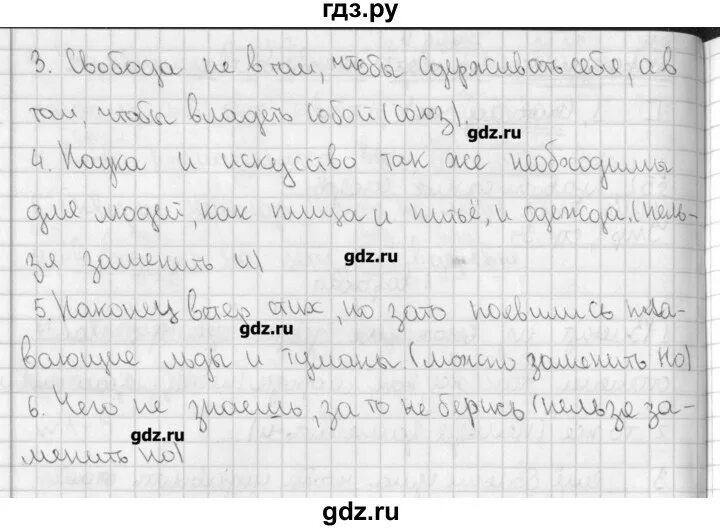 гдз.ру
3. Свобода не в том, чтобы сдерживать себя, а в
том, чтобы владеть собой (союз).
gdz.ru
4. Наука и искусство так же необходимы
для людей, как пища и питьё, и одежда. (нель-
зя заменить и)
gdz.ru
5. Наконец ветер стих, но зато появились пла-
gdz.ru
вающие льды и туманы. (можно заменить но)
6. Чего не знаешь, за то не берись (нельзе за-
gdz.ru
менить но)
gdz.ru